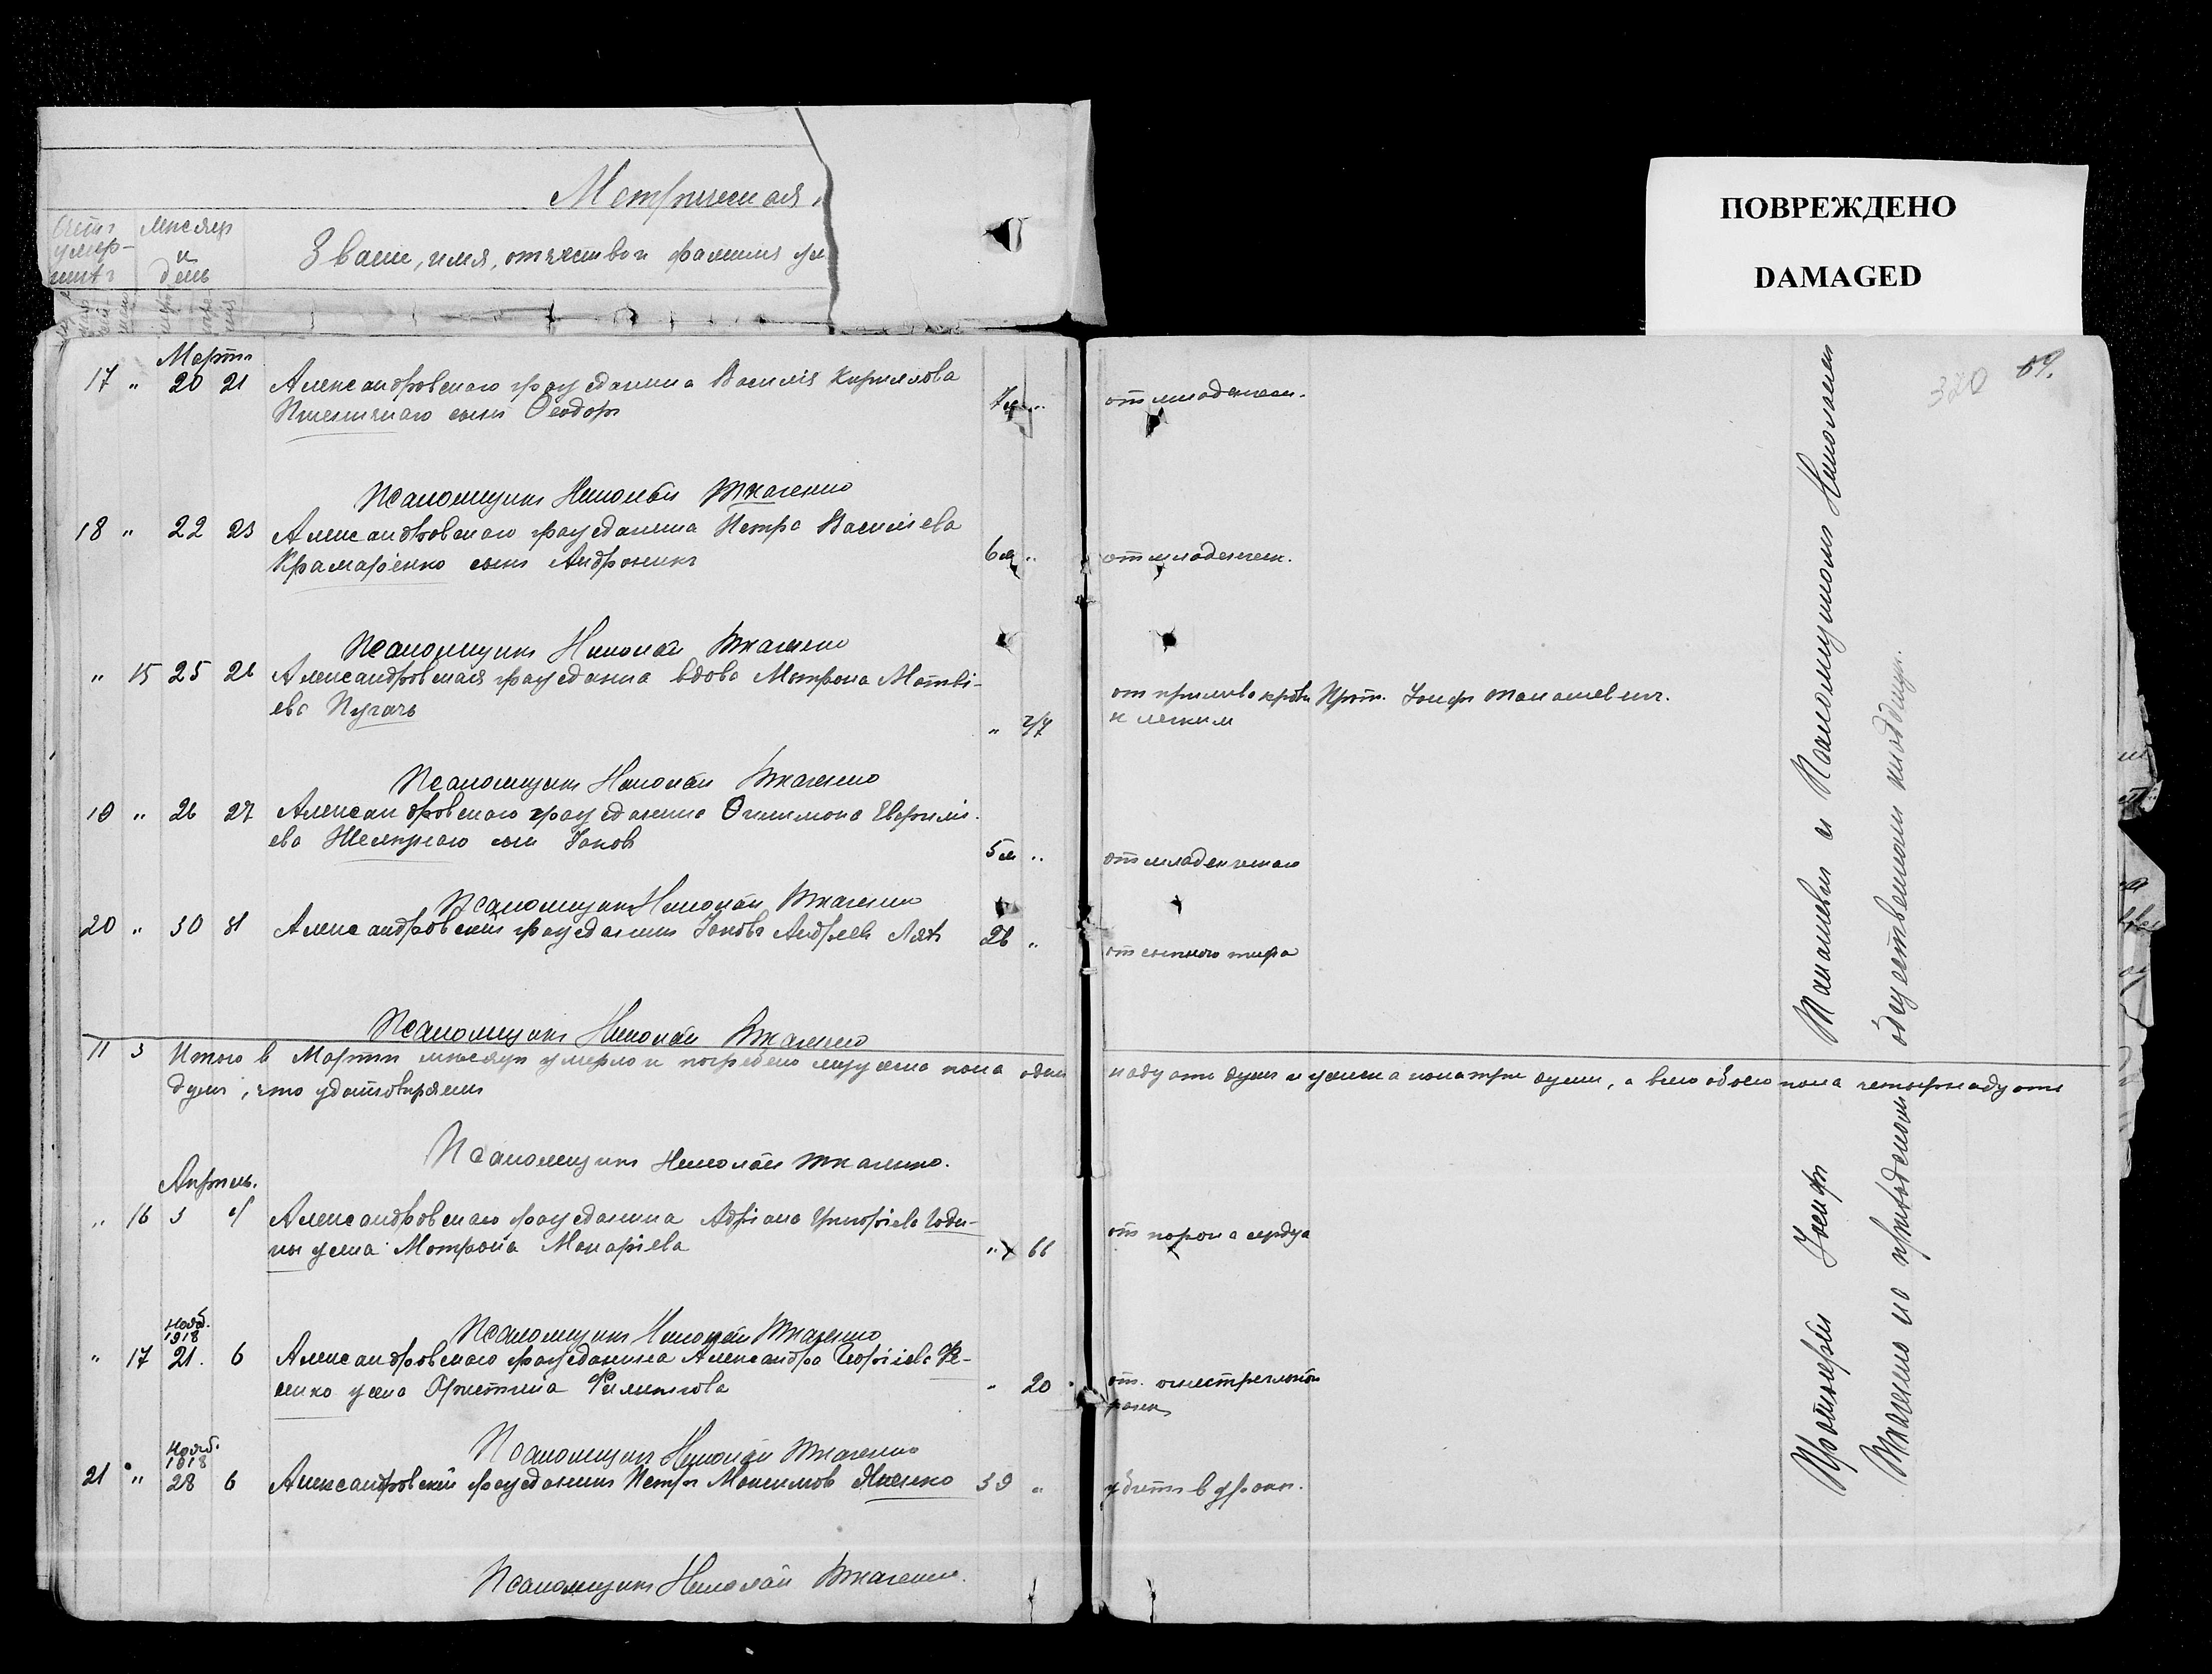 Метрическая
Счетъ умер-шихъ
Месяцъ и день
Званіе, имя, отчество и фамилія ум
ПОВРЕЖДЕНО
DAMAGED
320 69.
Мартъ
17 " 20 21 Александровскаго гражданина Василія Кириллова от младенческ.
Пшеничнаго сынъ Ѳеодоръ
Псаломщикъ Николай Ткаченко
18 " 22 23 Александровскаго гражданина Петра Василіева
Крамаренко сынъ Андроникъ 6 м " от младенческ.
Псаломщикъ Николай Ткаченко
" 15 25 26 Александровская гражданка вдова Матрона Матві-
ева Пугачъ " 74 от прилива крови к легким Прот. Іосифъ Танашевич.
Псаломщикъ Николай Ткаченко
19 " 26 27 Александровскаго гражданина Филимона Евфимі-
ева сынъ Іаковъ 5 м " от младенческаго
Псаломщикъ Николай Ткаченко
20 " 30 31 Александровскій гражданинъ Іаковъ Андреевъ Ляхъ 26 " от сыпного тифа
Псаломщикъ Николай Ткаченко
11 3 Итого в Мартѣ мѣсяцѣ умерло и погребено мужеска пола одиннадцать душъ и женска пола три души, а всего обоего пола четырнадцать
душъ, что удостовѣряемъ
Псаломщикъ Николай Ткаченко.
Апрѣль.
" 16 3 4 Александровскаго гражданина Адріана Григоріева Годи-
ны жена Матрона Макаріева " 66 от порока сердца
Псаломщикъ Николай Ткаченко
Нояб. 1918
" 17 21. 6 Александровскаго гражданина Александра Георгіева Фе-
сенко жена Христина Филиппова " 20 от огнестрельной раны
Псаломщикъ Николай Ткаченко
Нояб. 1918
21 " 28 6 Александровскій гражданинъ Петръ Максимовъ Яценко 39 " убитъ в
Псаломщикъ Николай Ткаченко.
Протоіерей Іосифъ Танашевич и Псаломщикомъ Николаемъ
Ткаченко на приходскомъ общественномъ кладбищѣ.